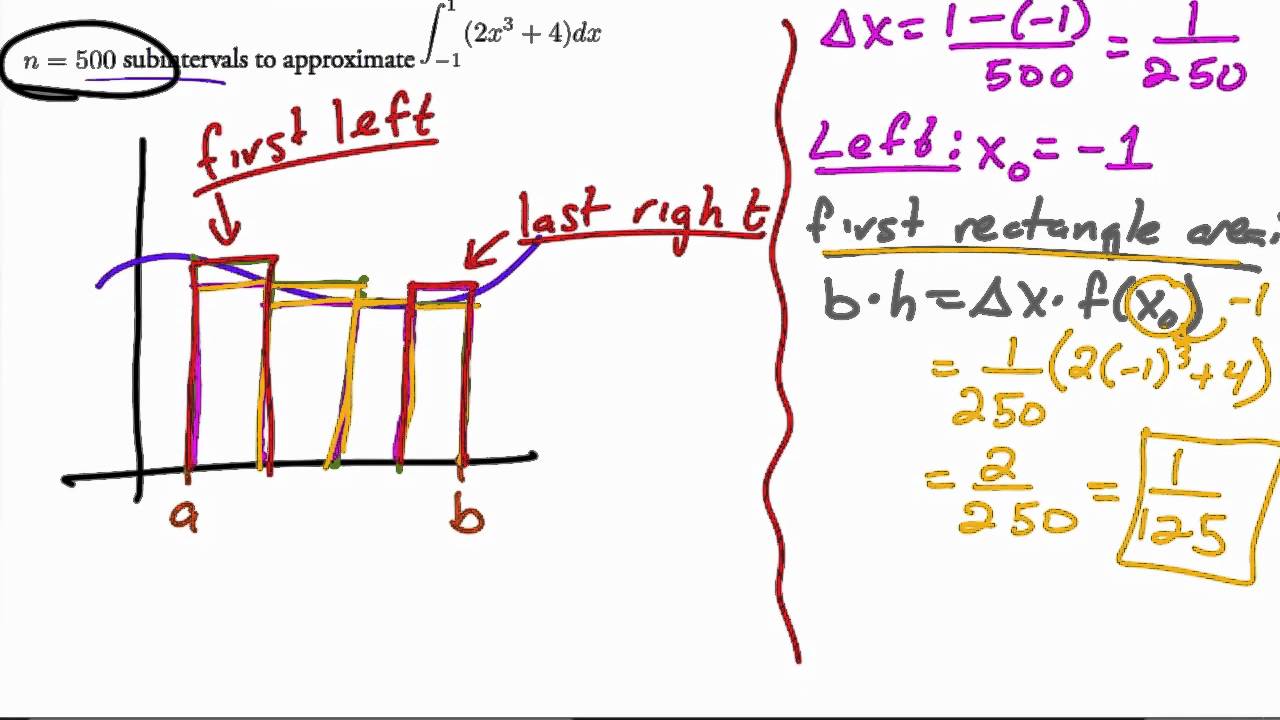 n = 500 subintervals to approximate ∫_{-1}^{1} (2x³ + 4)dx
first left
last right
a
b
Δx = (1-(-1))/500 = 1/250
Left: x₀ = -1
first rectangle area:
b·h = Δx·f(x₀) -1
= 1/250 (2(-1)³+4)
= 2/250 = 1/125